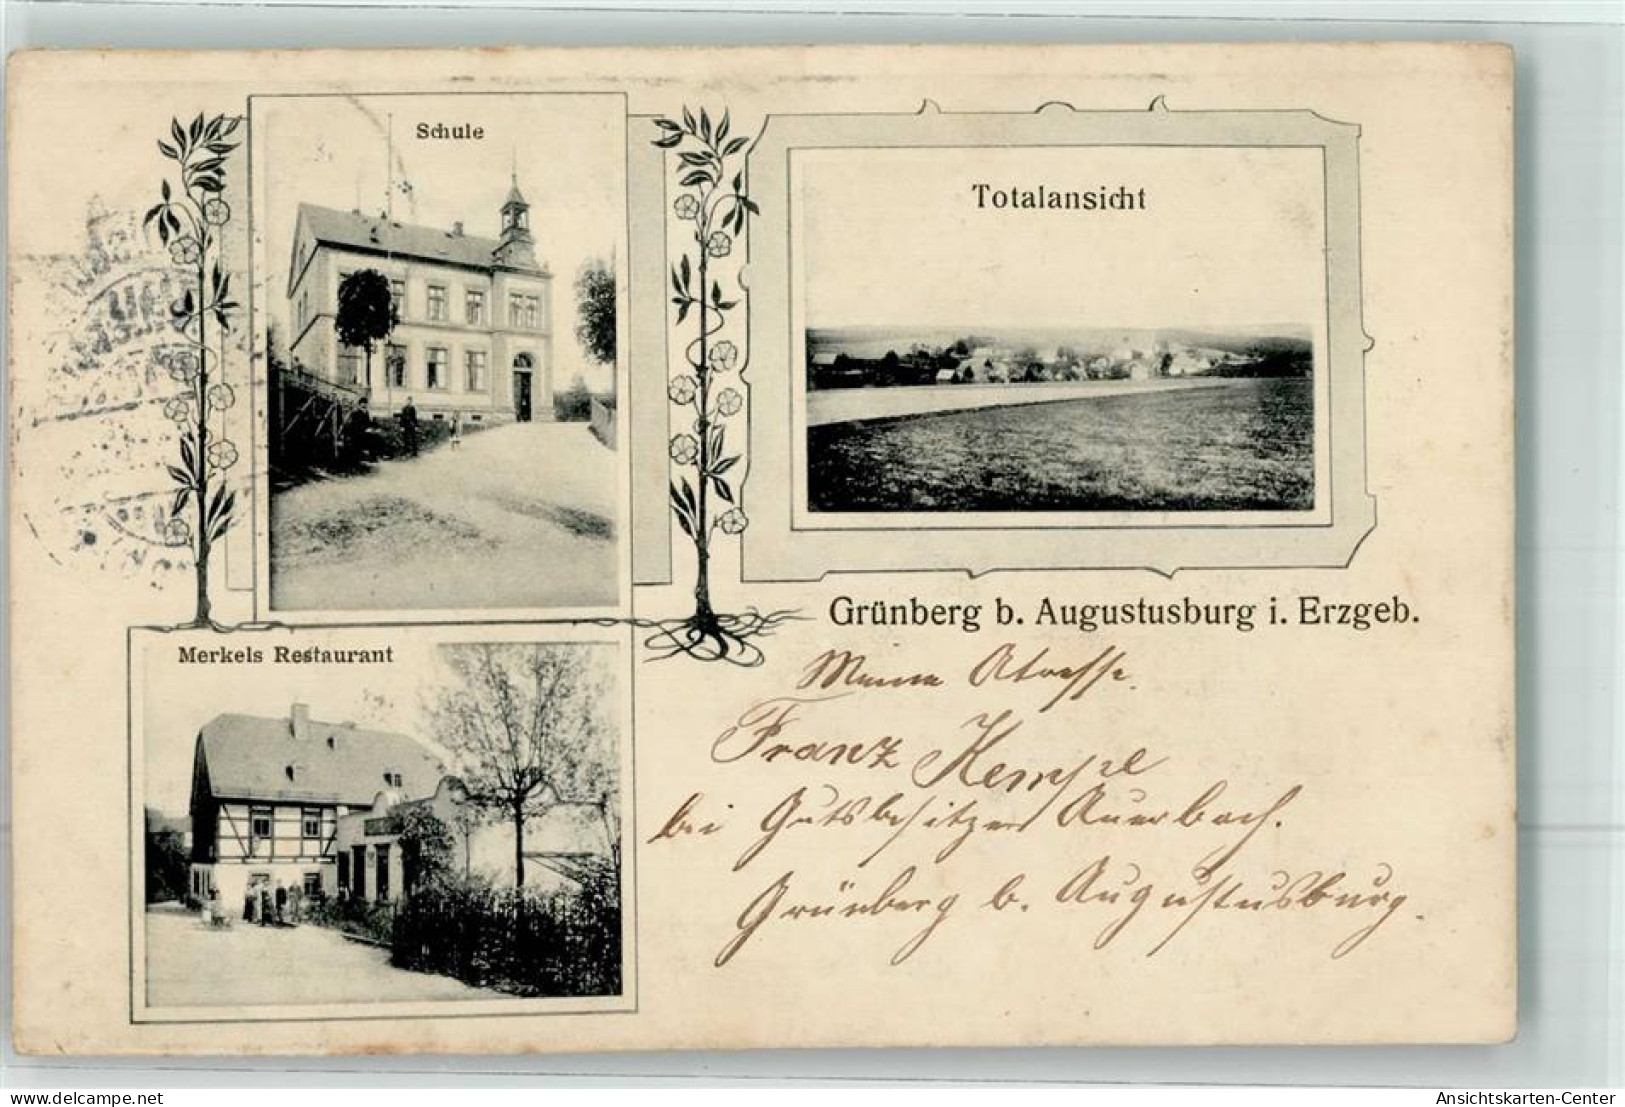 Schule
Totalansicht
Grünberg b. Augustusburg i. Erzgeb.
Merkels Restaurant
Meine Adresse.
Franz Hempel
bei Gutsbesitzer Auerbach.
Grünberg b. Augustusburg.
www.delcampe.net
Ansichtskarten-Center